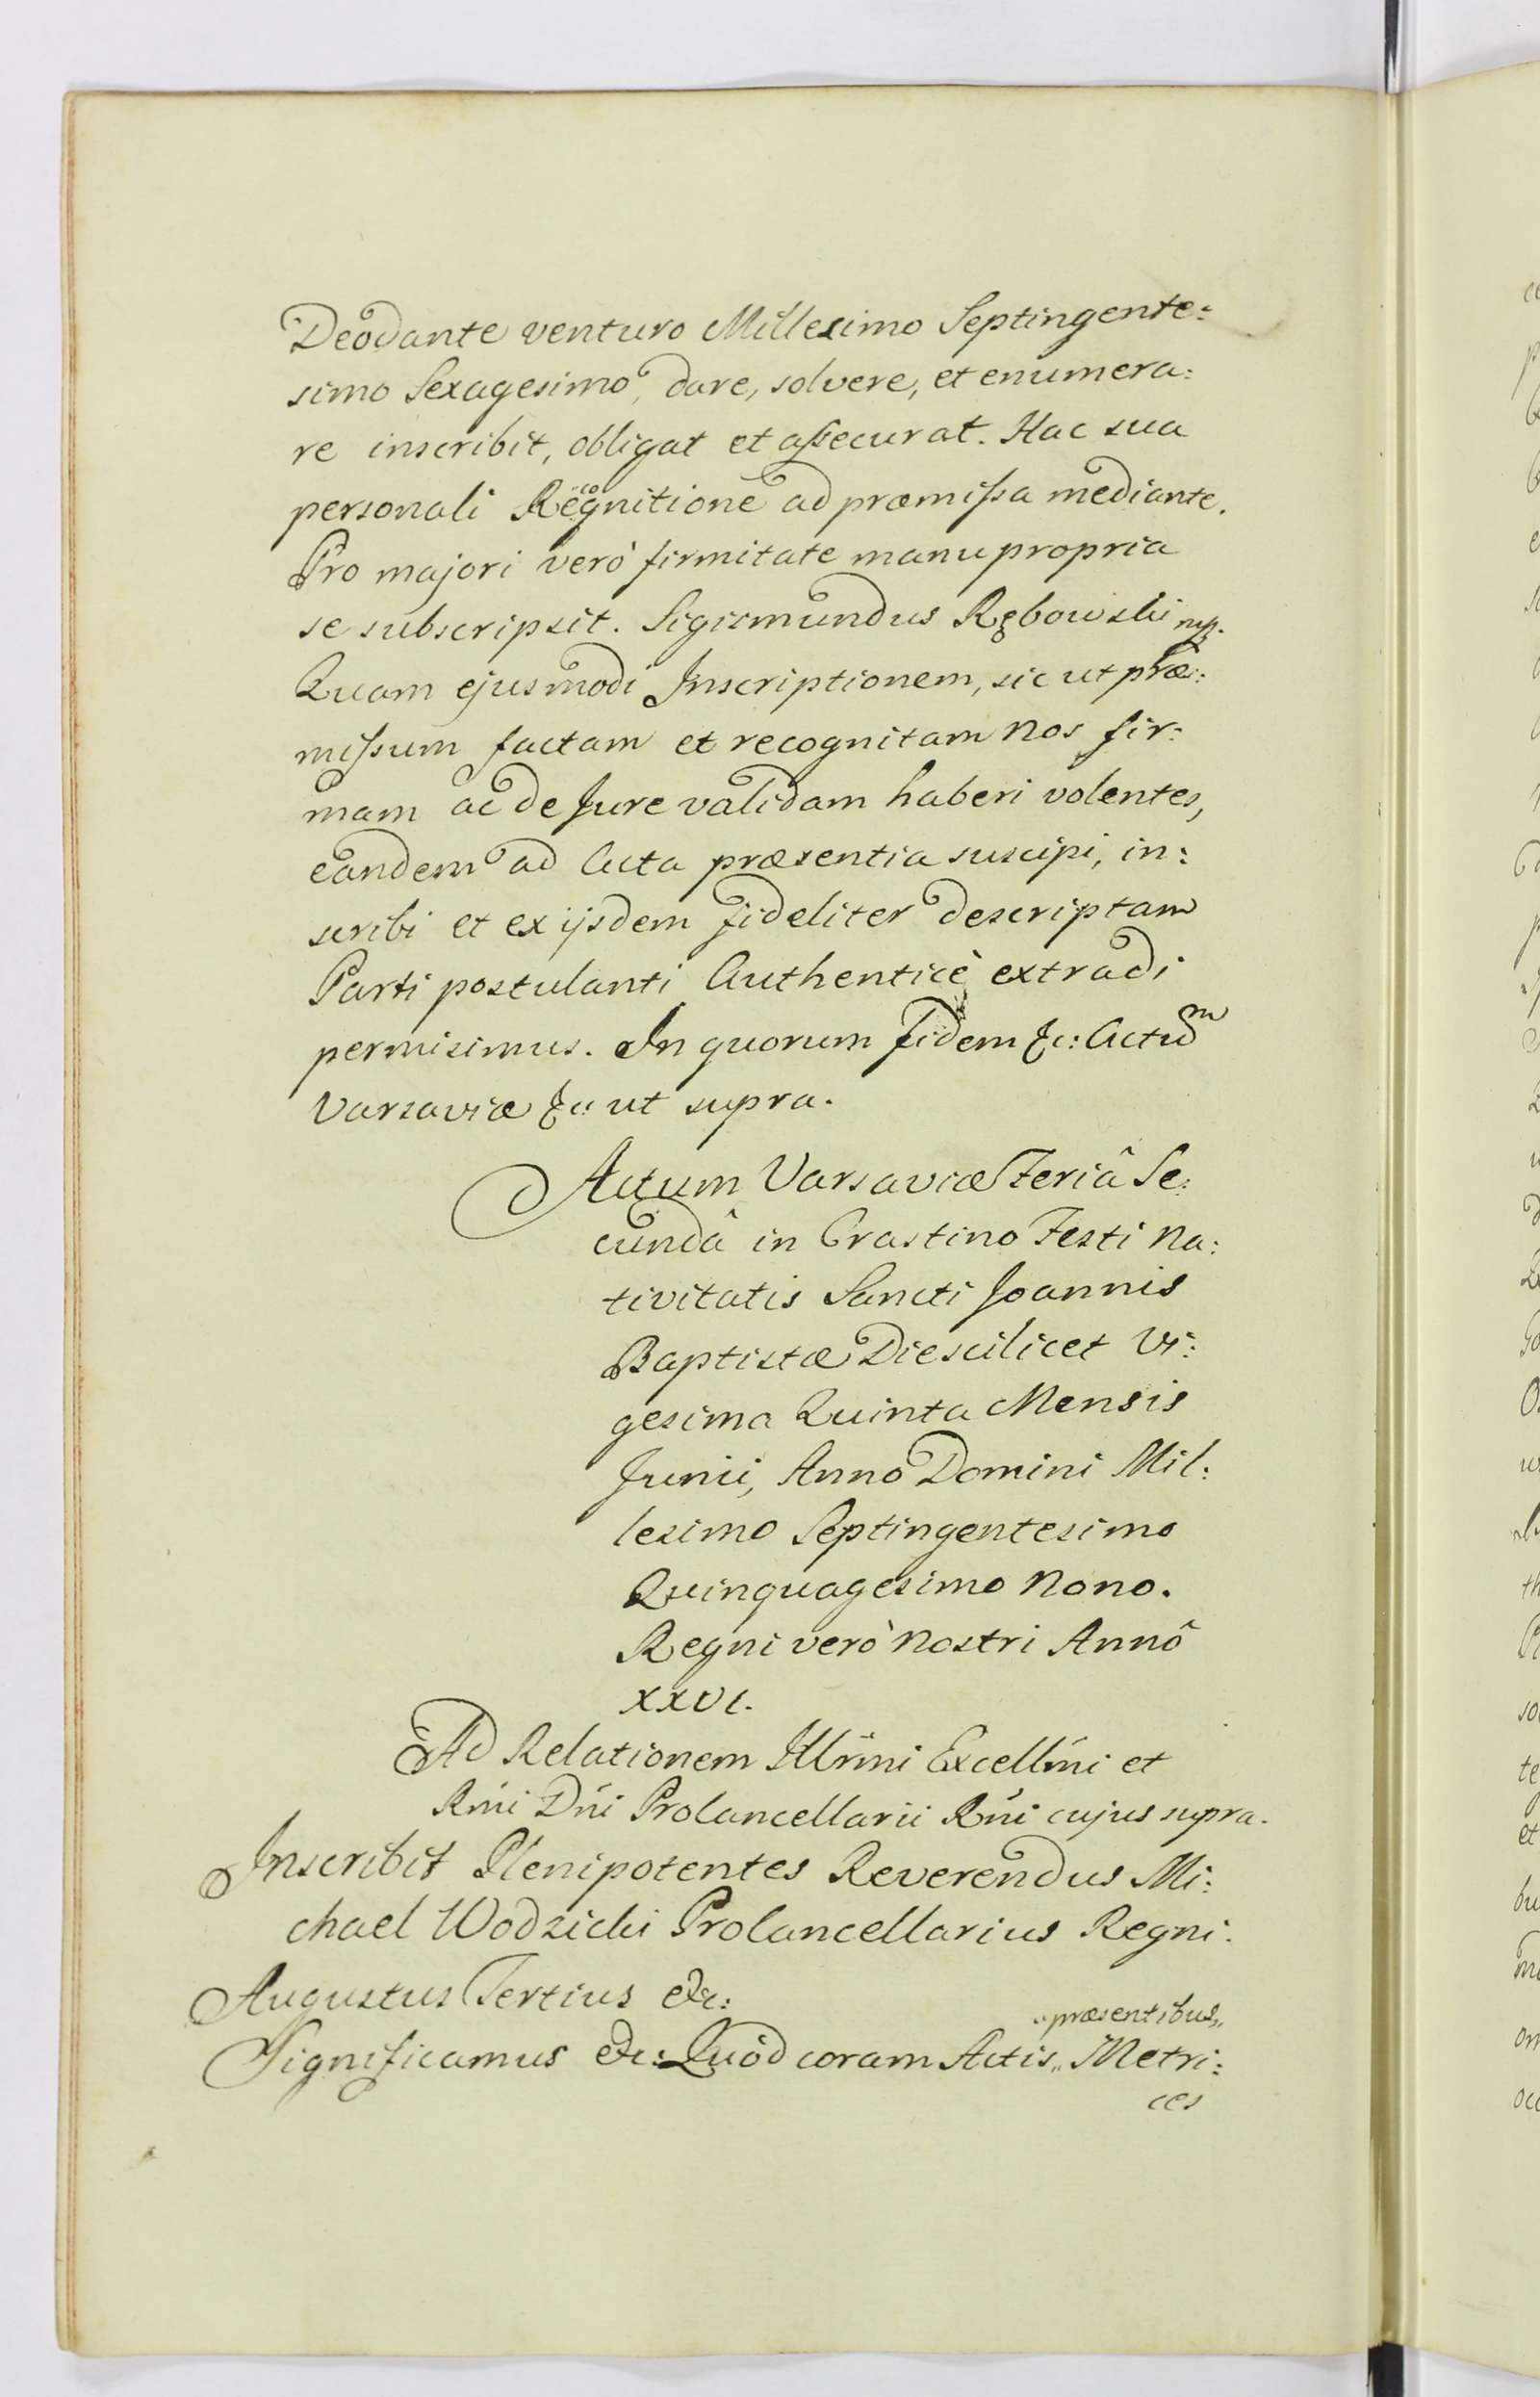 Deodante venturo Millesimo Septingente:
simo Sexagesimo, dare, solvere, et enumera:
re inscribit, obligat et assecurat. Hac sua
personali Recognitione ad præmissa mediante.
Pro majori verò firmitate manu propria
se subscripsit. Sigismundus Rębowski mp.
Quam ejusmodi Inscriptionem, sic ut præ:
missum factam et recognitam Nos fir:
mam ac de Jure validam haberi volentes,
eandem ad Acta præsentia suscipi, in:
scribi et ex ijsdem fideliter descriptam
Parti postulanti Authenticè extradi
permisimus. In quorum fidem &c: Actum
Varsaviæ &c: ut supra.
Actum Varsaviæ Feriâ Se:
cundâ in Crastino Festi Na:
tivitatis Sancti Joannis
Baptistæ Die scilicet Vi:
gesima Quinta Mensis
Junii, Anno Domini Mil:
lesimo Septingentesimo
Quinquagesimo Nono.
Regni verò Nostri Annô
XXVI.
Ad Relationem Illrīni Excellīni et
Rmī Dnī Procancellarii Rnī cujus supra.
Inscribit Plenipotentes Reverendus Mi:
chael Wodzicki Procancellarius Regni.
Augustus Tertius &c:
"præsentibus,,
Significamus &c: Quôd coram Actis,, Metri:
ces